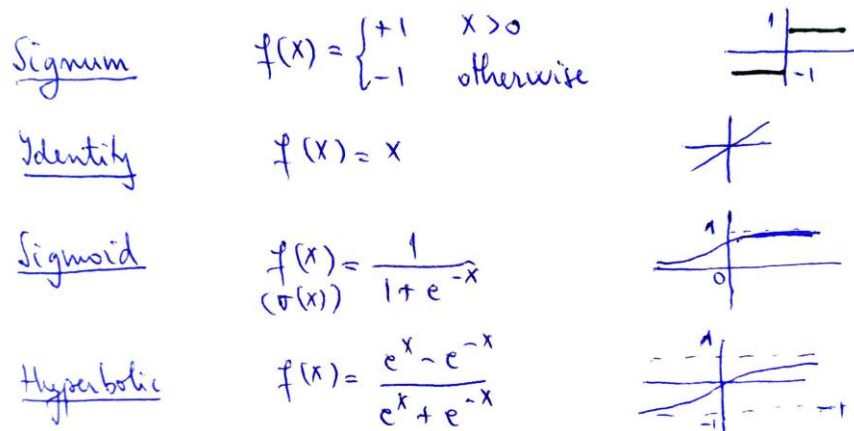 Signum f(x) = { +1 x > 0 1
-1 otherwise -1
Identity f(x) = x
Sigmoid f(x) = 1 / (1 + e^{-x}) 1
(σ(x)) 0
Hyperbolic f(x) = (e^x - e^{-x}) / (e^x + e^{-x}) 1
-1 -1